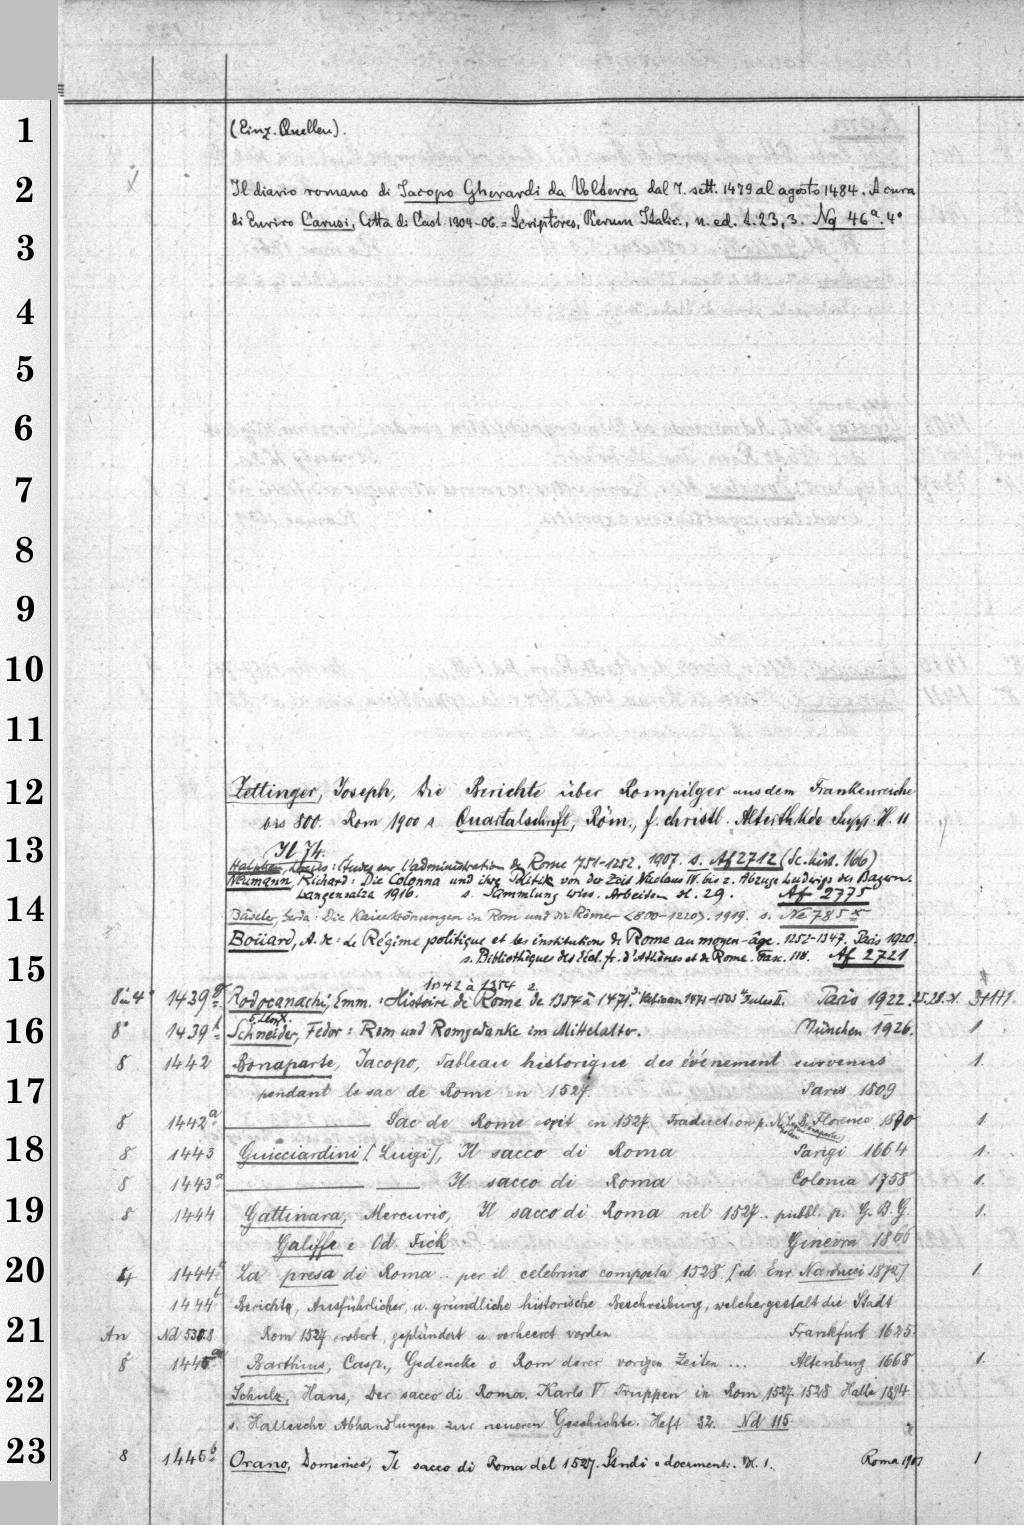 (Einz. Quellen).
1
2
Il diario romano di Jacopo Gherardi da Volterra dal 7. sett. 1479 al agosto 1484. A cura
di Enrico Carusi, Città di Cast 1904-06. = Scriptores, Rerum Italic., n. ed. t. 23, 3. Nq 46a. 4°
3
4
5
6
7
8
9
10
11
12
Zettinger, Joseph, Die Berichte über Rompilger aus dem Frankenreiche
bis 800. Rom 1900 s Quartalschrift, Röm., f. christl. Alterthkde Supp. H. 11
13
Jl 74.
Halphen, Louis: Études sur l'administration de Rome 751-1252. 1907. s. Af 2712 (Sc. hist. 166)
Neumann, Richard: Die Colonna und ihre Politik von der Zeit Nicolaus IV. bis z. Abzuge Ludwigs des Bayern.
Langensalza 1916. s. Sammlung wiss. Arbeiten H. 29. Af 2775
14
Bäseler, Gerda: Die Kaiserkrönungen in Rom und die Römer <800-1220>. 1919. s. Ne 785x
Boüard, A. de: Le Régime politique et les institutions de Rome au moyen-âge. 1252-1347. Paris 1920.
15
s. Bibliothèques des écol. fr. d'Athènes et de Rome. Fasc. 118. Af 2721
1042 à 1354
8 in 4° 1439g Rodocanachi, Emm.: Histoire de Rome de 1354 à 1471. Vatican 1471-1503 Jules II. Paris 1922. 25. 28. X. 3+1+1
s. Léon X.
16
8° 1439h Schneider, Fedor: Rom und Romgedanke im Mittelalter. München 1926. 1
8 1442 Bonaparte, Jacopo, Tableau historique des événement survenus 1.
17
pendant le sac de Rome en 1527. Paris 1809
8 1442a Sac de Rome écrit en 1527. Traduction p. N. L. B. Florence 1830 1.
18
8 1443 Guicciardini [Luigi], Il sacco di Roma Parigi 1664 1.
8 1443a Il sacco di Roma Colonia 1758 1.
19
8 1444 Gattinara, Mercurio, Il sacco di Roma nel 1527. pubbl. p. G. B. G. 1.
Galiffe e Od. Fick Ginevra 1866
20
4 1444a La presa di Roma.. per il celebrino composta 1528 [ed. Enr. Narducci 1872] 1.
1444b Berichte, Ausführlicher, u. gründliche historische Beschreibung, welchergestalt die Stadt
21
An Nd 5308 Rom 1527 erobert, geplündert u. verheeret worden Frankfurt 1625
8 1445a Barthius, Casp., Gedencke o Rom derer vorigen Zeiten ... Altenburg 1668 1.
22
Schulz, Hans, Der sacco di Roma. Karls V. Truppen in Rom 1527-1528 Halle 1894
s. Hallesche Abhandlungen zur neueren Geschichte. Heft 32. Nd 115
23
8 1445b Orano, Domenico, Il sacco di Roma del 1527. Studi e documenti. Vol. 1. Roma 1901 1